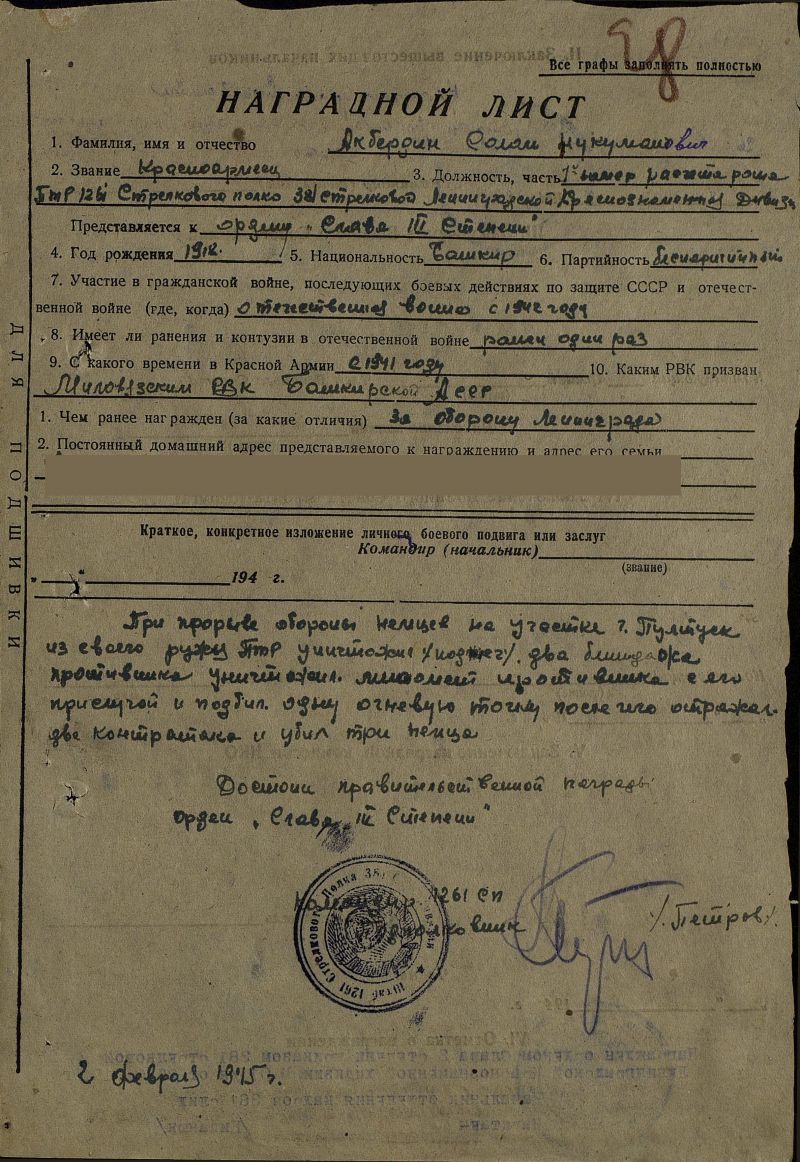 Все графы заполнять полностью
НАГРАДНОЙ ЛИСТ
1. Фамилия, имя и отчество Акбердин Салам Нукуманович
2. Звание Красноармеец 3. Должность, часть 1й номер расчета роты
ПТР 1261 Стрелкового полка 381 Стрелковой Ленинградской Краснознаменной Дивизи
Представляется к ордену „Слава III Степени"
4. Год рождения 1912. 5. Национальность Башкир 6. Партийность Беспартийный
7. Участие в гражданской войне, последующих боевых действиях по защите СССР и отечест-
венной войне (где, когда) Отечественная война с 1942 году
8. Имеет ли ранения и контузии в отечественной войне ранен один раз
9. С какого времени в Красной Армии с 1941 году 10. Каким РВК призван
РВК Башкирской АССР
1. Чем ранее награжден (за какие отличия) За оборону Ленинграда
2. Постоянный домашний адрес представляемого к награждению и адрес его семьи
Краткое, конкретное изложение личного боевого подвига или заслуг
Командир (начальник)
(звание)
„ " 194 г.
При прорыве обороны немцев на участке г. Пултуск
из своего ружья ПТР уничтожил /поджег/ два блиндажа
противника уничтожил миномет противника с его
прислугой и подбил одну огневую точку после чего отражал
две контратаки и убил три немца
Достоин правительственной награды
Орден „Слава III Степени"
Командир 1261 СП
Подполковник /Петров/
Штаб 1261 Стрелкового Полка 381
2 февраля 1945 г.
ДЛЯ ПОДШИВКИ